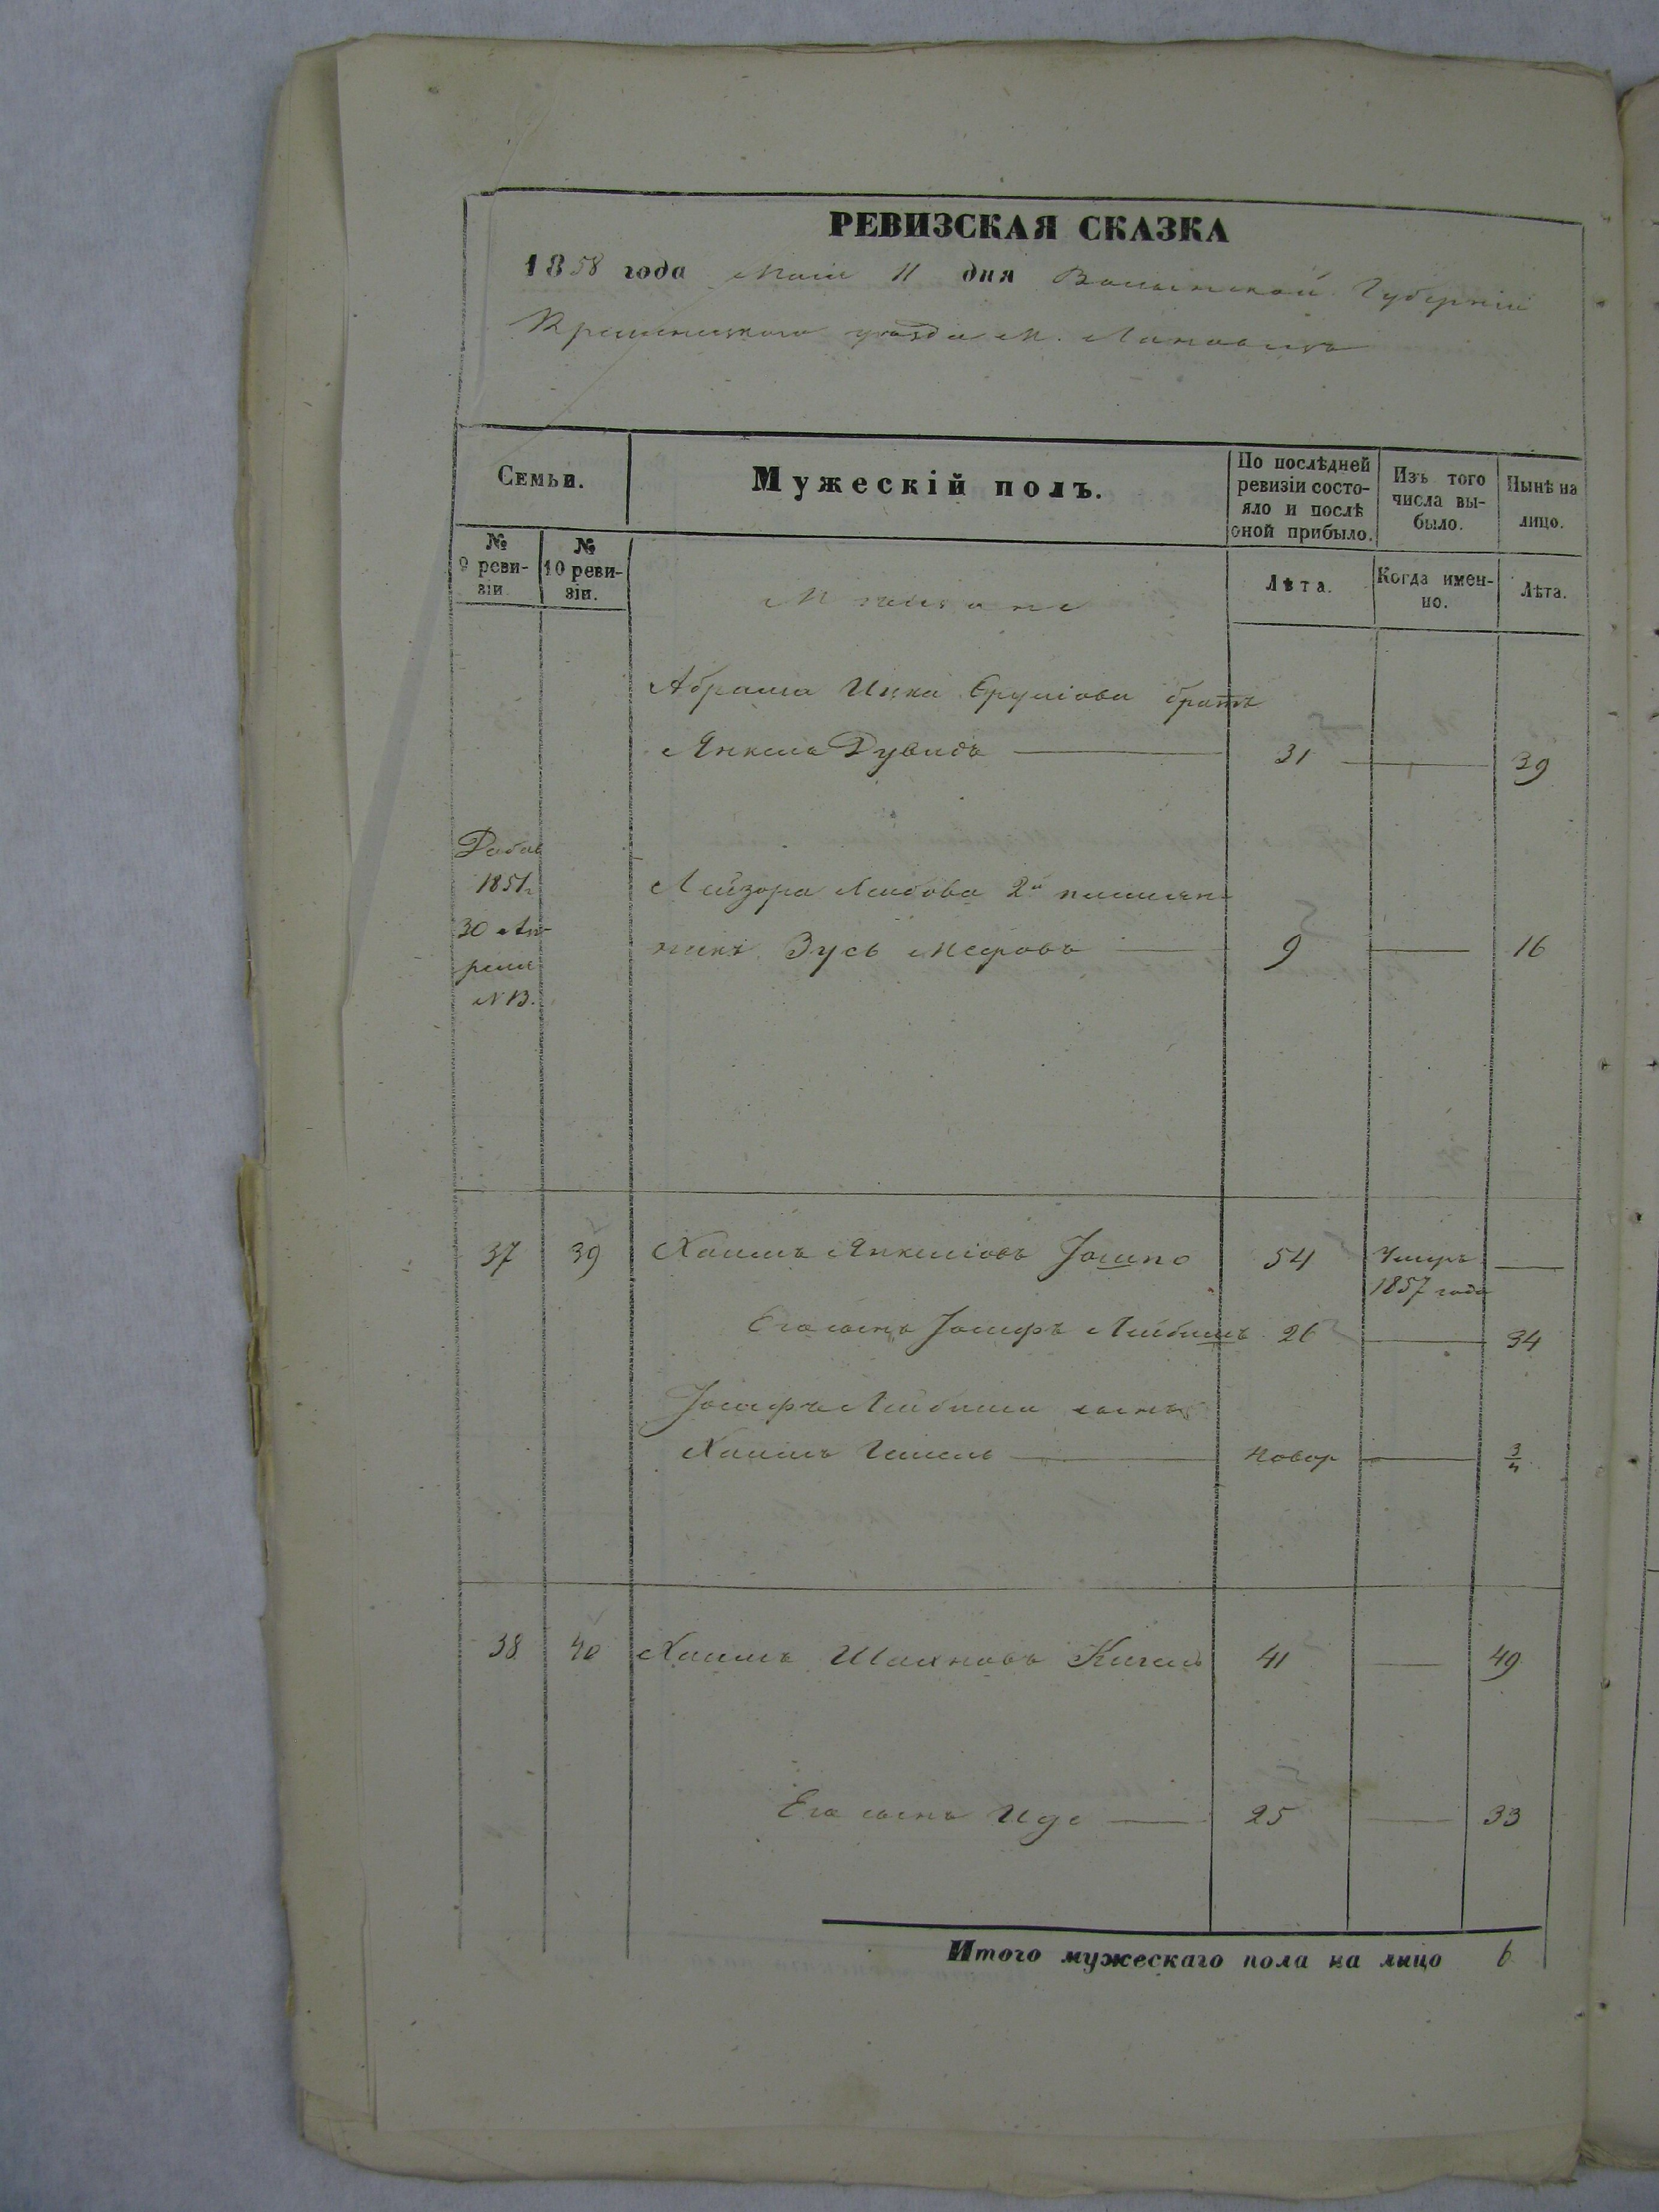 РЕВИЗСКАЯ СКАЗКА
1858 года Маія 11 дня Волынской Губерніи
Кременецкого уѣзда М. Лановецъ
Семьи.
Мужескій полъ.
По послѣдней ревизіи состояло и послѣ оной прибыло.
Изъ того числа выбыло.
Нынѣ на лицо.
№ 9 ревизіи.
№ 10 ревизіи.
Мѣщане
Лѣта.
Когда именно.
Лѣта.
Абрама Ицка Сруліова братъ
Янкель Дувидъ 31 39
1851
30 Апреля
№ 13.
Лейзора Лейбова 2й племянникъ Зусь 9 16
37 39 Хаимъ Янкеліовъ 54 Умеръ 1857 года
Его сынъ Іосифъ Лейбишъ 26 34
Іосифъ Лейбиша сынъ
Хаимъ новор 3/4
38 40 Хаимъ Шахновъ 41 49
Его сынъ 25 33
Итого мужескаго пола на лицо 6